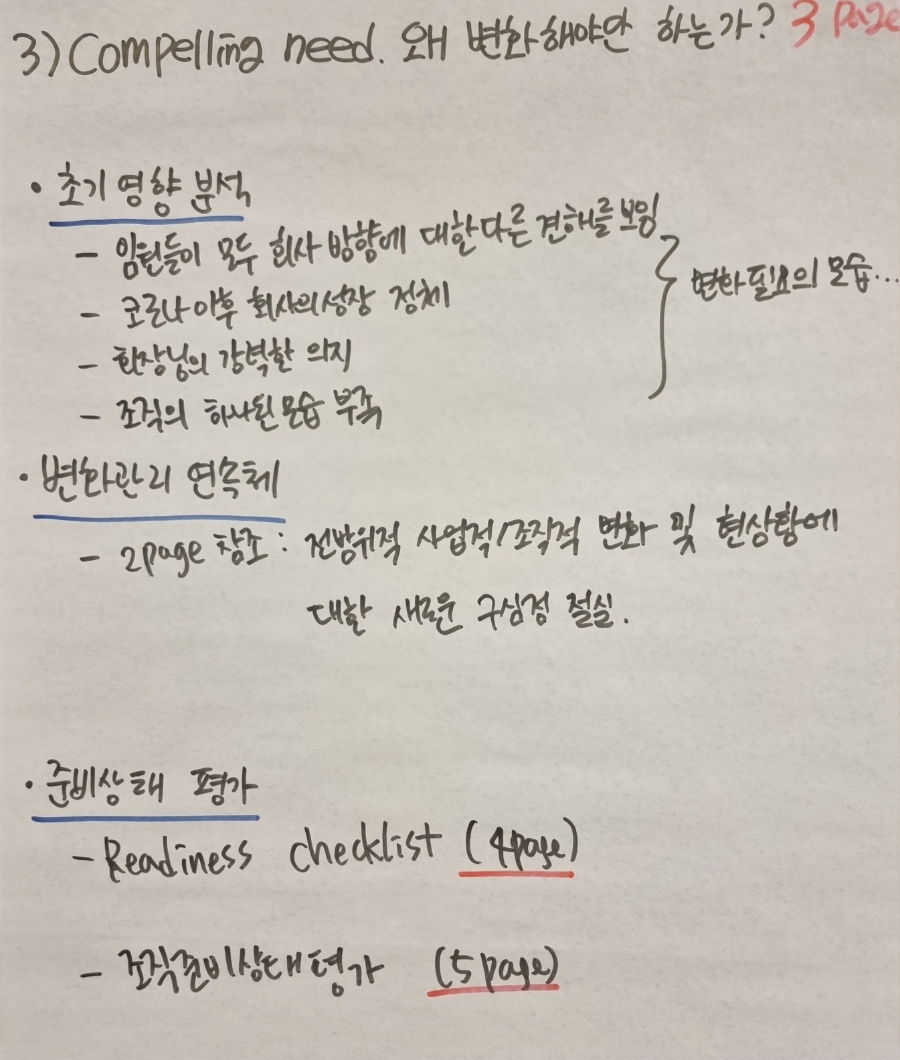 3) Compelling need. 왜 변화해야만 하는가? 3 page
• 초기 영향 분석
- 임원들이 모두 회사 방향에 대한 다른 견해를 보임
- 코로나 이후 회사의 성장 정체
- 회장님의 강력한 의지
- 조직의 하나된 모습 부족
변화 필요의 모습...
• 변화관리 연속체
- 2page 참조 : 전방위적 사업적/조직적 변화 및 현상황에
대한 새로운 구심점 절실.
• 준비상태 평가
- Readiness checklist (4page)
- 조직준비상태평가 (5page)